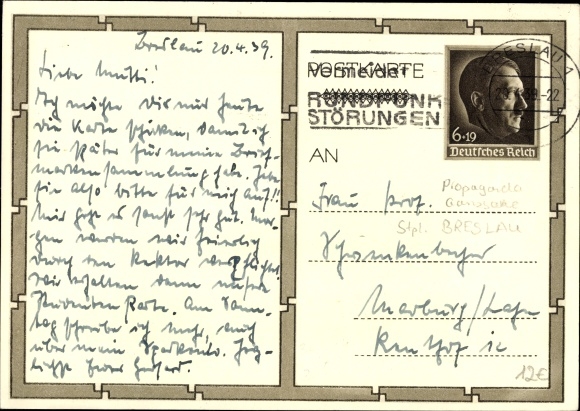 Breslau 20.4.39.
Liebe Mutti!
Ich möchte Dir nur heute
die Karte schicken, damit ich
sie später für meine Brief-
markensammlung habe. Hebe
sie also bitte für mich auf!!
Mir geht es sonst sehr gut. Mor-
gen werden wir feierlich
durch den Rektor verpflichtet
wir erhalten dann unsere
Studenten Karte. Am Sonn-
tag schreibe ich mehr, auch
über mein Sparkonto. Herz-
lichst Euer
POSTKARTE
Vermeidet
RUNDFUNK
STÖRUNGEN
BRESLAU 1
6+19
Deutsches Reich
AN
Frau Prof.
Propaganda
Ganzsache
Stpl. BRESLAU
Marburg/Lahn
Renthof 1c
12€